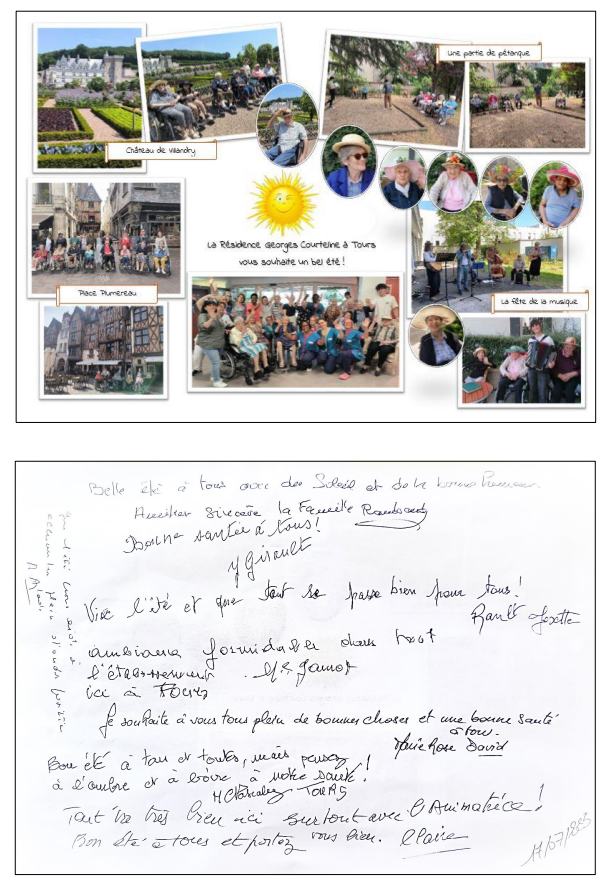 Une partie de pétanque
Château de Villandry
La Résidence Georges Courteline à Tours
vous souhaite un bel été !
Place Plumereau
La fête de la musique
Belle été à tous avec du Soleil et de la bonne humeur
Amitier Sincère la Famille
Bonne santée à tous !
Y Girault
Vive l'été et que tout se passe bien pour tous !
Josette
ambiance formidable dans tout
l'établissement
ici à Tours
Je souhaite à vous tous plein de bonnes choses et une bonne santé
à tous.
Marie Rose David
Bon été à tous et toutes, mais pensez
à l'ombre et à boire à votre santé !
Tout va très bien ici surtout avec l'Animatrice !
Bon été à tous et portez vous bien. Claire
17/07/2025